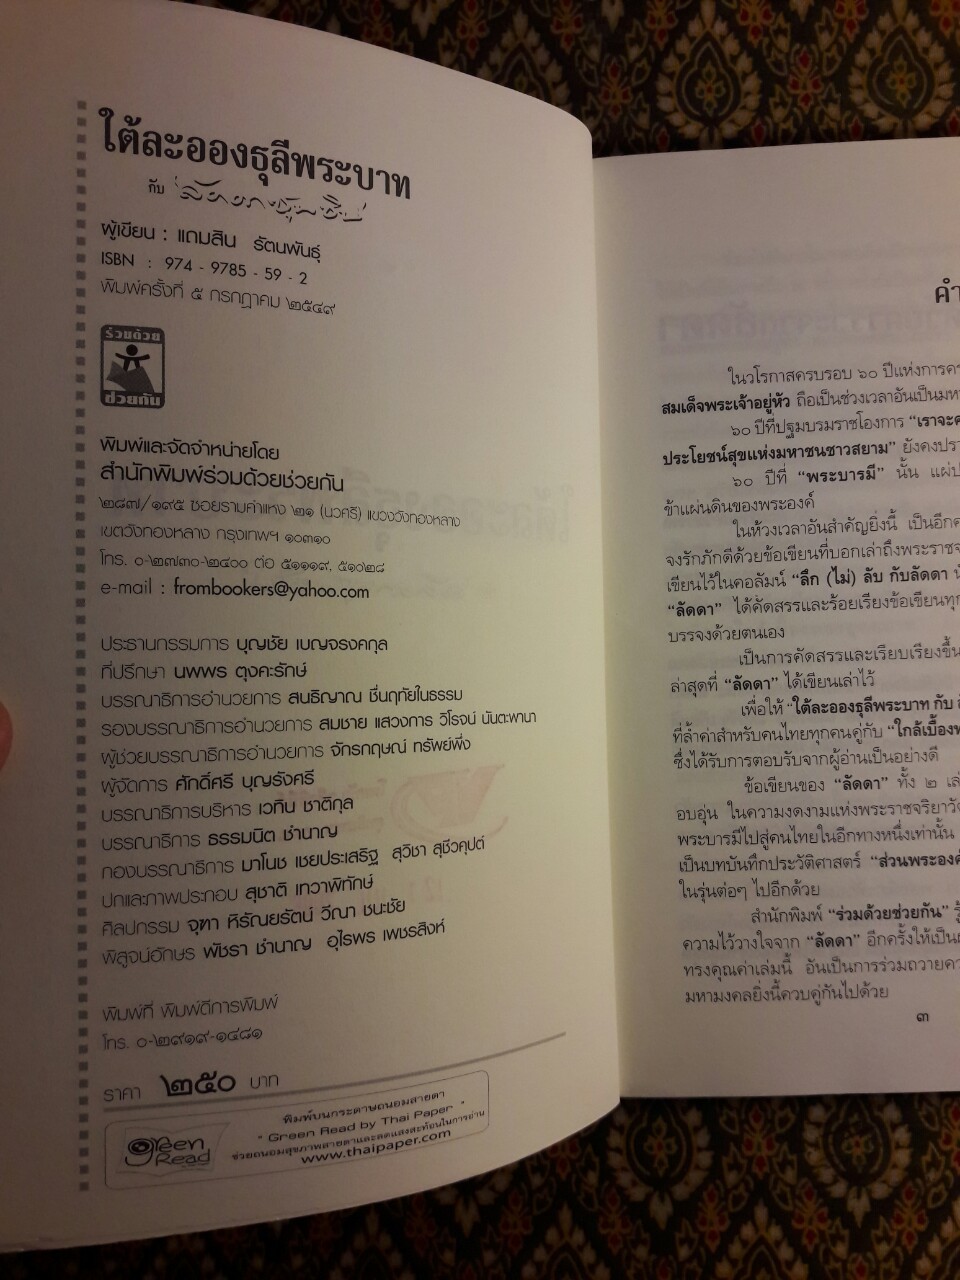 ใต้ละอองธุลีพระบาท
กับ
ผู้เขียน : แถมสิน รัตนพันธุ์
ISBN : 974 - 9785 - 59 - 2
พิมพ์ครั้งที่ ๕ กรกฎาคม ๒๕๔๙
ร่วมด้วย
ช่วยกัน
พิมพ์และจัดจำหน่ายโดย
สำนักพิมพ์ร่วมด้วยช่วยกัน
๒๘๗/๑๙๕ ซอยรามคำแหง ๒๑ (นวศรี) แขวงวังทองหลาง
เขตวังทองหลาง กรุงเทพฯ ๑๐๓๑๐
โทร. ๐-๒๗๓๐-๒๔๐๐ ต่อ ๕๑๑๑๙, ๕๑๐๒๘
e-mail : frombookers@yahoo.com
ประธานกรรมการ บุญชัย เบญจรงคกุล
ที่ปรึกษา นพพร ตุงคะรักษ์
บรรณาธิการอำนวยการ สนธิญาณ ชื่นฤทัยในธรรม
รองบรรณาธิการอำนวยการ สมชาย แสวงการ วิโรจน์ นันตะพานา
ผู้ช่วยบรรณาธิการอำนวยการ จักรกฤษณ์ ทรัพย์พึ่ง
ผู้จัดการ ศักดิ์ศรี บุญรังศรี
บรรณาธิการบริหาร เวทิน ชาติกุล
บรรณาธิการ ธรรมนิต ชำนาญ
กองบรรณาธิการ มาโนช เชยประเสริฐ สุวิชา สุชีวคุปต์
ปกและภาพประกอบ สุชาติ เทวาพิทักษ์
ศิลปกรรม จุฑา หิรัณยรัตน์ วีณา ชนะชัย
พิสูจน์อักษร พัชรา ชำนาญ อุไรพร เพชรสิงห์
พิมพ์ที่ พิมพ์ดีการพิมพ์
โทร. ๐-๒๙๑๙-๑๔๘๑
ราคา ๒๕๐ บาท
green Read
พิมพ์บนกระดาษถนอมสายตา
" Green Read by Thai Paper "
ช่วยถนอมสุขภาพสายตาและลดแสงสะท้อนในการอ่าน
www.thaipaper.com
คำ
ในวโรกาสครบรอบ ๖๐ ปีแห่งการคร
สมเด็จพระเจ้าอยู่หัว ถือเป็นช่วงเวลาอันเป็นมห
๖๐ ปีที่ปฐมบรมราชโองการ "เราจะค
ประโยชน์สุขแห่งมหาชนชาวสยาม" ยังคงปรา
๖๐ ปีที่ "พระบารมี" นั้น แผ่ป
ข้าแผ่นดินของพระองค์
ในห้วงเวลาอันสำคัญยิ่งนี้ เป็นอีกค
จงรักภักดีด้วยข้อเขียนที่บอกเล่าถึงพระราชจ
เขียนไว้ในคอลัมน์ "ลึก (ไม่) ลับ กับลัดดา
"ลัดดา" ได้คัดสรรและร้อยเรียงข้อเขียนทุก
บรรจงด้วยตนเอง
เป็นการคัดสรรและเรียบเรียงขึ้น
ล่าสุดที่ "ลัดดา" ได้เขียนเล่าไว้
เพื่อให้ "ใต้ละอองธุลีพระบาท กับ
ที่ล้ำค่าสำหรับคนไทยทุกคนคู่กับ "ใกล้เบื้องพ
ซึ่งได้รับการตอบรับจากผู้อ่านเป็นอย่างดี
ข้อเขียนของ "ลัดดา" ทั้ง ๒ เล่
อบอุ่น ในความงดงามแห่งพระราชจริยาวั
พระบารมีไปสู่คนไทยในอีกทางหนึ่งเท่านั้น
เป็นบทบันทึกประวัติศาสตร์ "ส่วนพระองค์
ในรุ่นต่อๆ ไปอีกด้วย
สำนักพิมพ์ "ร่วมด้วยช่วยกัน" รู้
ความไว้วางใจจาก "ลัดดา" อีกครั้งให้เป็นผ
ทรงคุณค่าเล่มนี้ อันเป็นการร่วมถวายคว
มหามงคลยิ่งนี้ควบคู่กันไปด้วย
๓